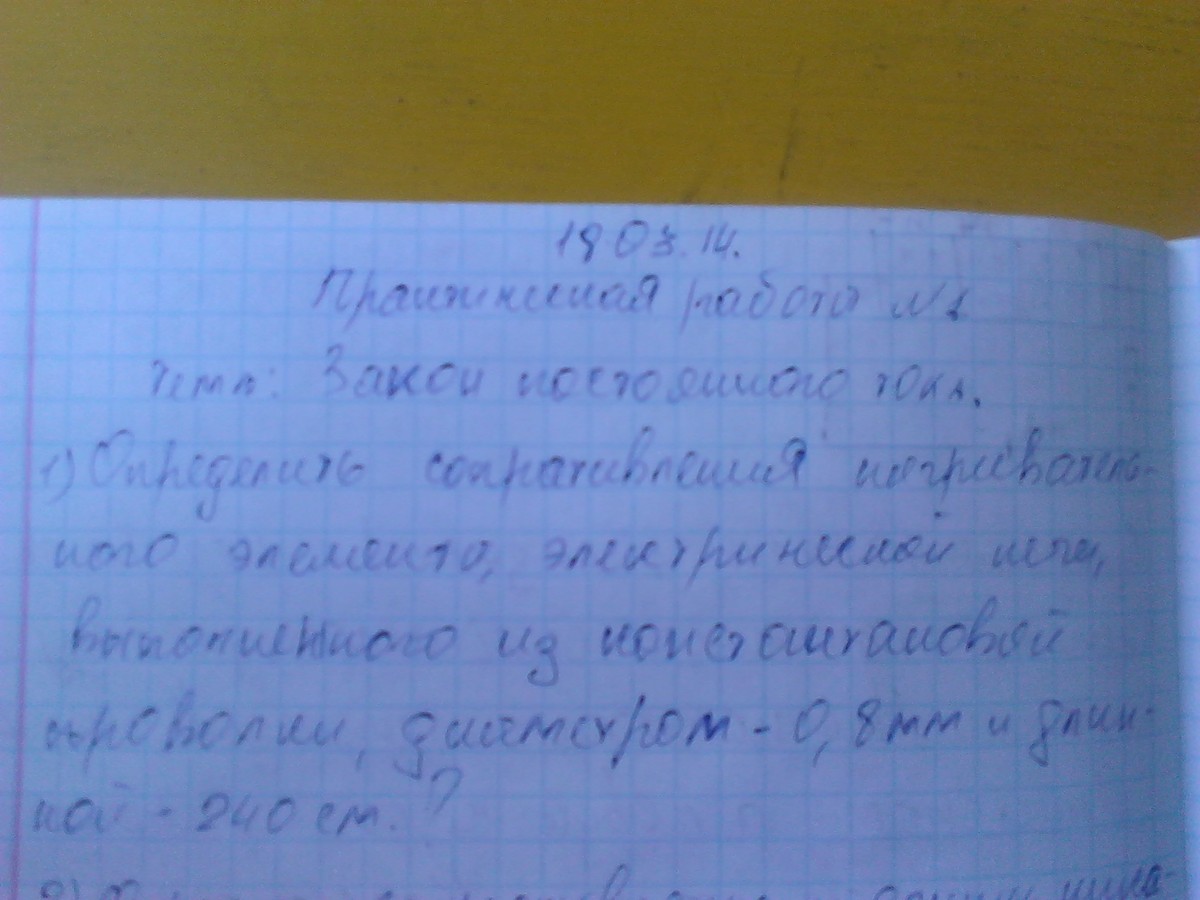 18 03. 14.
Практическая работа №1
Тема: Закон постоянного тока.
1) Определить сопративления нагреватель-
ного элемента, электрической печи,
выполненного из константановой
проволки, диаметром - 0,8 мм и длин-
ной - 240 см. ?
2)